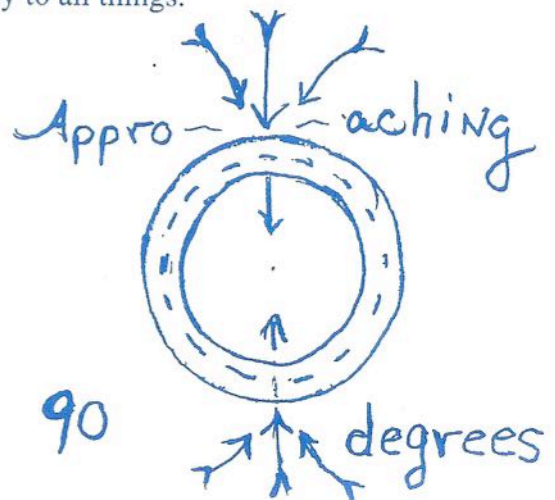 y to all things.
Appro~ ~aching
90 degrees